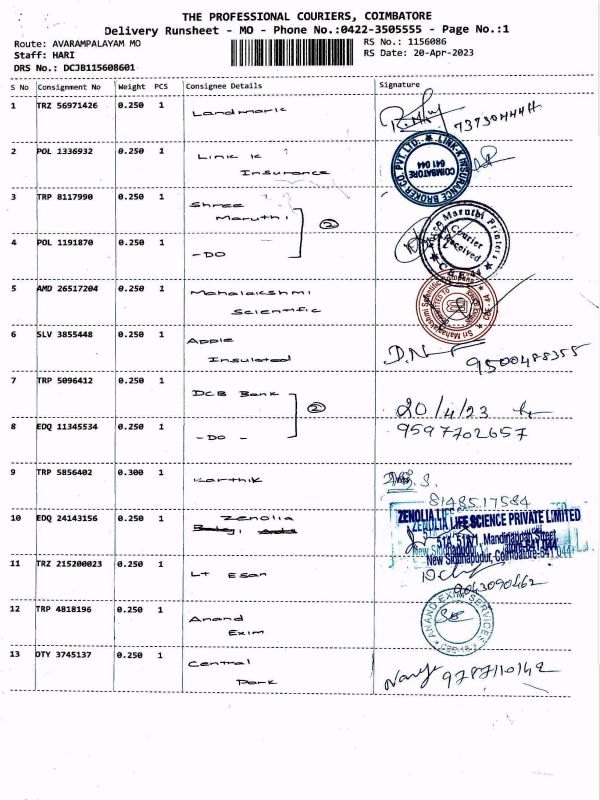 THE PROFESSIONAL COURIERS, COIMBATORE
Delivery Runsheet - MO - Phone No.:0422-3505555 - Page No.:1
Route: AVARAMPALAYAM MO
RS No.: 1156086
Staff: HARI
RS Date: 20-Apr-2023
DRS No.: DCJB115608601
S No Consignment No Weight PCS Consignee Details Signature
1 TRZ 56971426 0.250 1 Landmark
2 POL 1336932 0.250 1 Link K
Insurance
LINK-K INSURANCE BROKER CO. PVT. LTD. ★
COIMBATORE
641 044
3 TRP 8117990 0.250 1 Shree
Maruthi
②
Shree Maruthi Printers
Courier
Received
4 POL 1191870 0.250 1 -DO
5 AMD 26517204 0.250 1 Mahalakshmi
Scientific
Sri Mahalakshmi Scientific Company
6 SLV 3855448 0.250 1 Apple
Insulated
9500488355
7 TRP 5096412 0.250 1 DCB Bank
②
20/4/23
8 EDQ 11345534 0.250 1 -DO-
9597702657
9 TRP 5856402 0.300 1 Karthik
8148517584
10 EDQ 24143156 0.250 1 Zenolia
ZENOLIA LIFE SCIENCE PRIVATE LIMITED
51A, 51A/1, Mandiriappan Street,
New Siddhapudur, Coimbatore-641 044
11 TRZ 215200023 0.250 1 Lt Esan
9043090462
12 TRP 4818196 0.250 1 Anand
Exim
ANAND EXIM SERVICES
13 DTY 3745137 0.250 1 Central
Park
9787110142